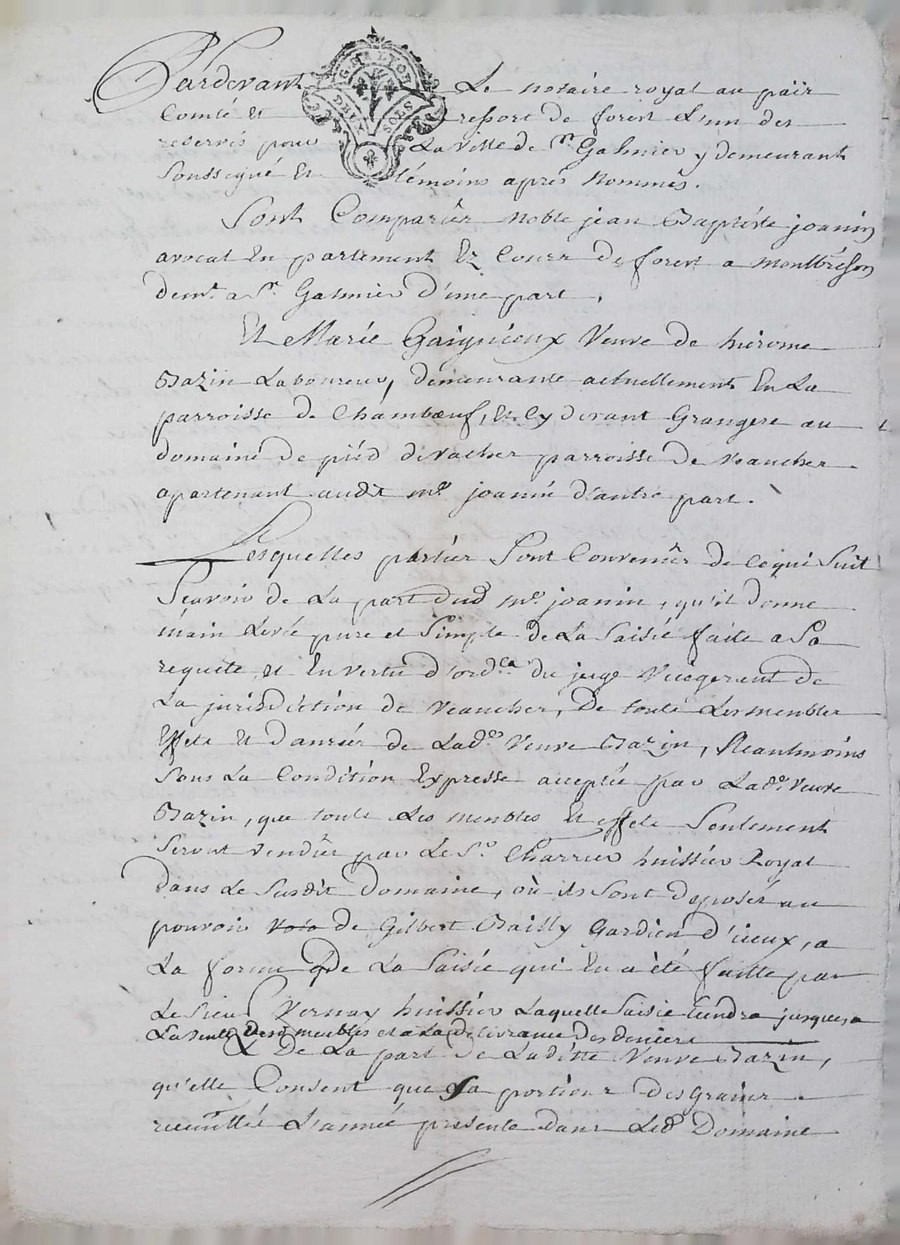 Pardevant Le notaire royal au païs
Comté et ressort de forest L'un des
reservés pour La ville de St Galmier y demeurant
Soussigné Et témoins après Nommés.
Sont Comparus noble jean Baptiste joanin
avocat En parlement Et Cours de forest a montbrison
demt a St Galmier d'une part,
Et Marie Gaignieux Veuve de hierome
Bazin Laboureur, demeurante actuellement En La
parroisse de Chambœuf, Et Cy devant Grangere au
domaine de pied de vacher parroisse de Veaucher
apartenant audit me joanin d'autre part.
Lesquelles parties Sont Convenües de ce qui Suit
Scavoir de La part dud me joanin, qu'il donne
main Levée pure et Simple de La Saisie faite a Sa
requête et En vertu d'ordce du juge Vicegerent de
La jurisdiction de Veaucher, de touts Les meubles
Effets Et danrées de Lade Veuve Bazin, Neantmoins
Sous La Condition Expresse acceptée par Lade Veuve
Bazin, que touts Les meubles Et effets Seulement
Seront Vendus par Le Sr Charrier huissier Royal
dans Le Susdit Domaine, où ils Sont deposés au
pouvoir de Gilbert Bailly Gardien d'iceux, a
La forme de La Saisie qui En a été faitte par
Le Sieur Vernay huissier Laquelle Saisie tiendra jusques a
La vente des meubles et a La Délivrance des deniers
Et De La part de Laditte Veuve Bazin,
qu'elle Consent que Sa portion des grains
recueillis L'année presente dans Led Domaine